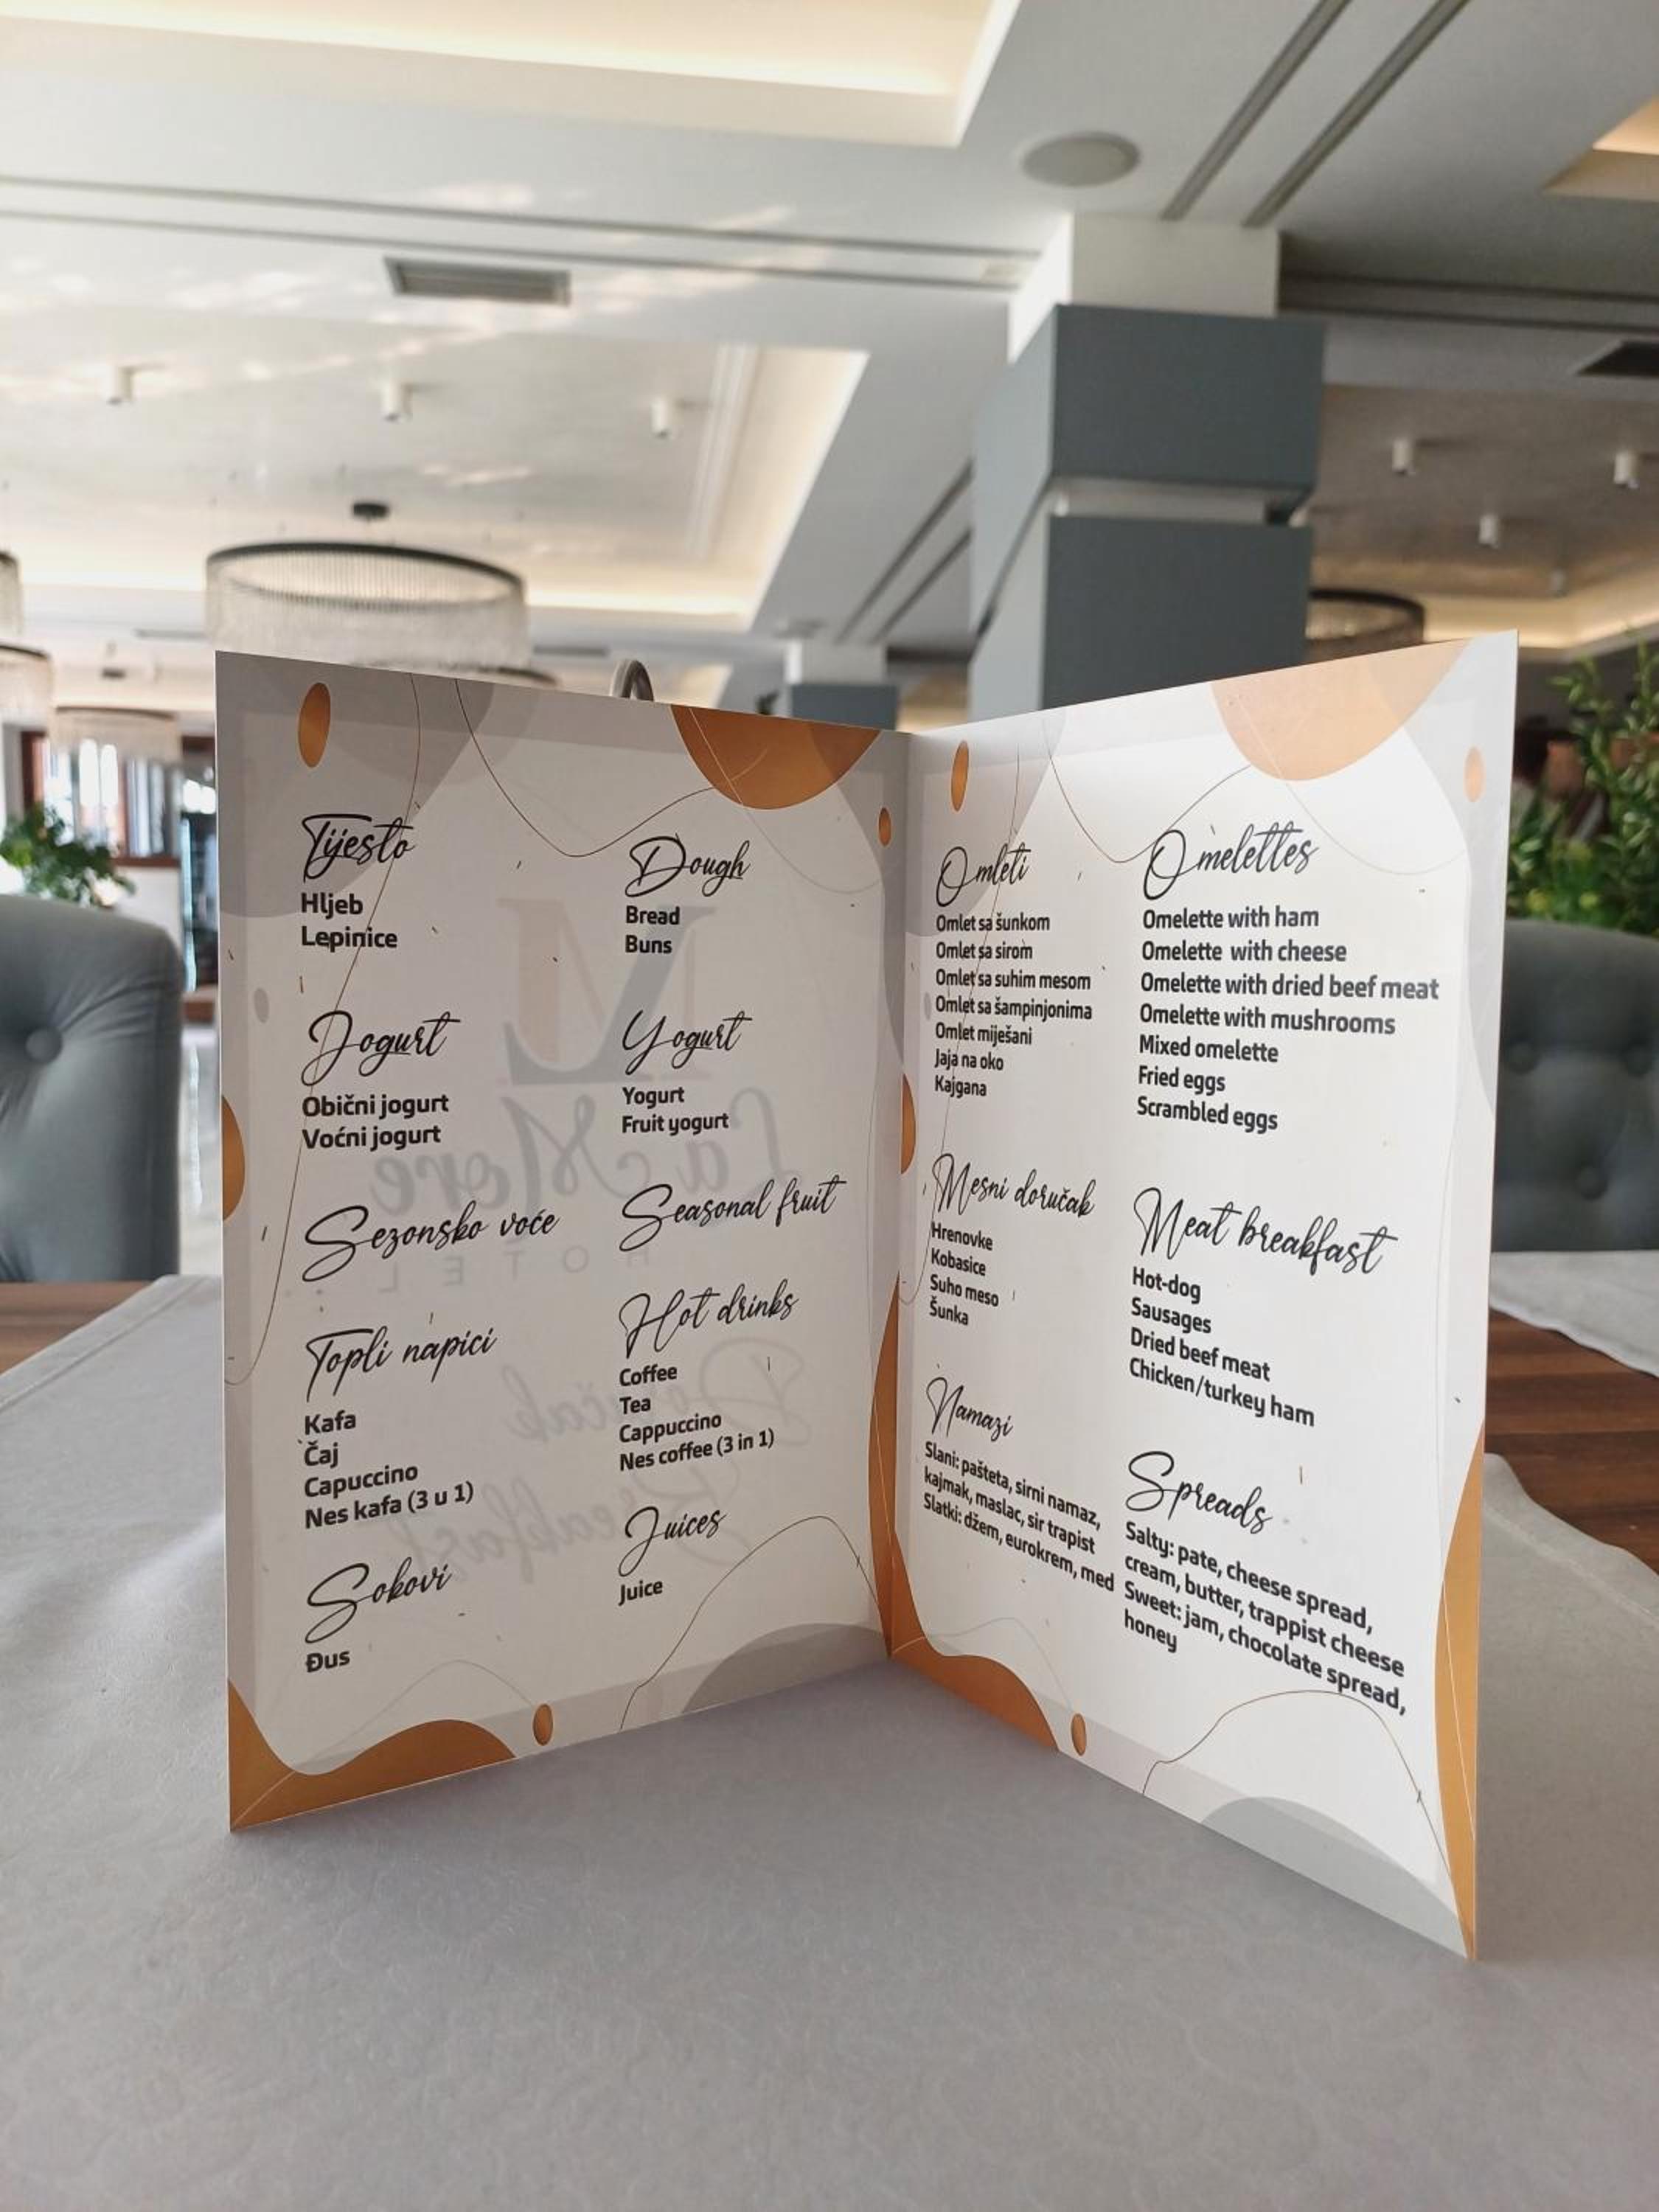 Tijesto
Hljeb
Lepinice
Jogurt
Obični jogurt
Voćni jogurt
Sezonsko voće
Topli napici
Kafa
Čaj
Capuccino
Nes kafa (3 u 1)
Sokovi
Đus
Dough
Bread
Buns
Yogurt
Yogurt
Fruit yogurt
Seasonal fruit
Hot drinks
Coffee
Tea
Cappuccino
Nes coffee (3 in 1)
Juices
Juice
Omleti
Omlet sa šunkom
Omlet sa sirom
Omlet sa suhim mesom
Omlet sa šampinjonima
Omlet miješani
Jaja na oko
Kajgana
Mesni doručak
Hrenovke
Kobasice
Suho meso
Šunka
Namazi
Slani: pašteta, sirni namaz,
kajmak, maslac, sir trapist
Slatki: džem, eurokrem, med
Omelettes
Omelette with ham
Omelette with cheese
Omelette with dried beef meat
Omelette with mushrooms
Mixed omelette
Fried eggs
Scrambled eggs
Meat breakfast
Hot-dog
Sausages
Dried beef meat
Chicken/turkey ham
Spreads
Salty: pate, cheese spread,
cream, butter, trappist cheese
Sweet: jam, chocolate spread,
honey
La More
HOTEL
Doručak
Breakfast